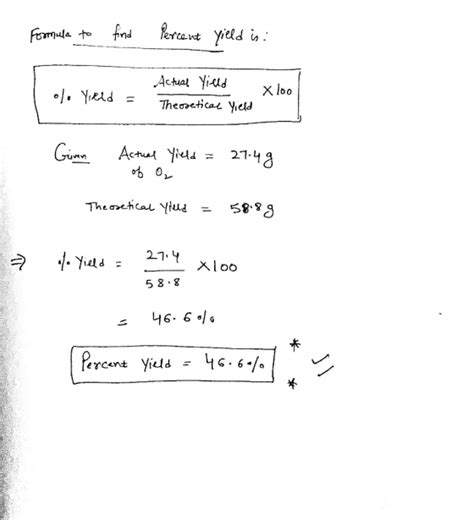 Formula to find Percent Yield is:
% Yield = Actual Yield / Theoretical Yield × 100
Given Actual Yield = 27.4g
of O2
Theoretical Yield = 58.8g
⇒ % Yield = 27.4 / 58.8 × 100
= 46.6%
Percent Yield = 46.6%